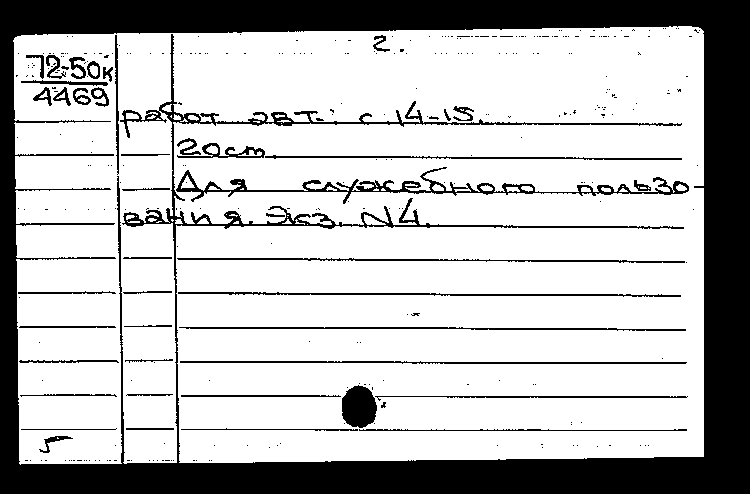 2.
72-50к
4469
работ авт.: с. 14-15.
20 ст.
Для служебного пользо-
вания. Экз. N4.
5